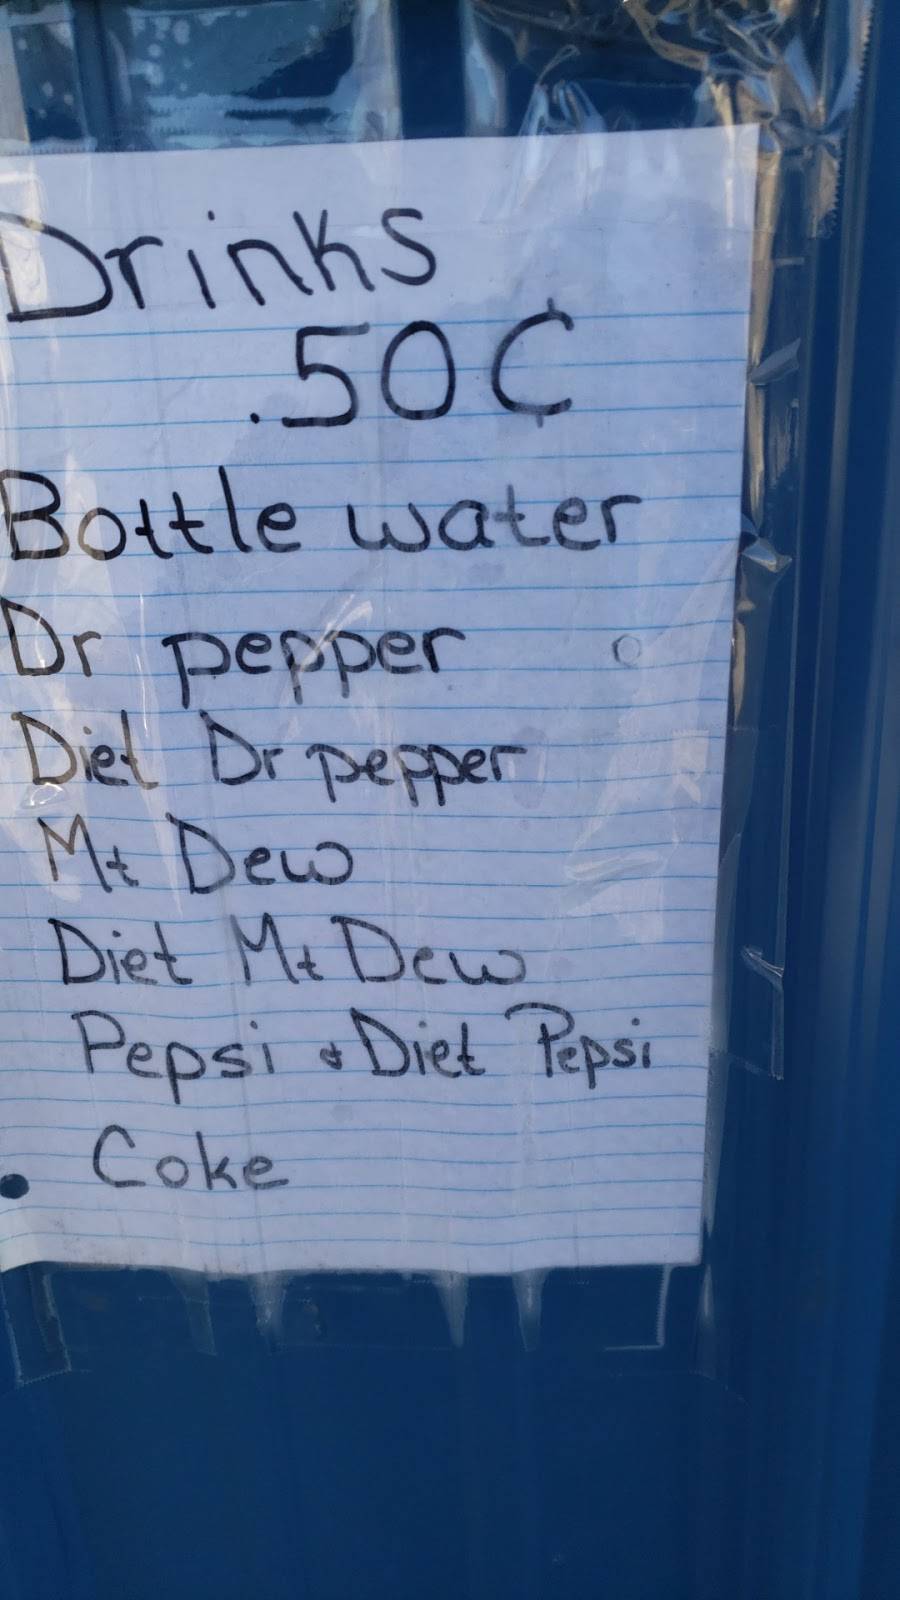 Drinks
.50¢
Bottle water
Dr pepper
Diet Dr pepper
Mt Dew
Diet Mt Dew
Pepsi & Diet Pepsi
Coke